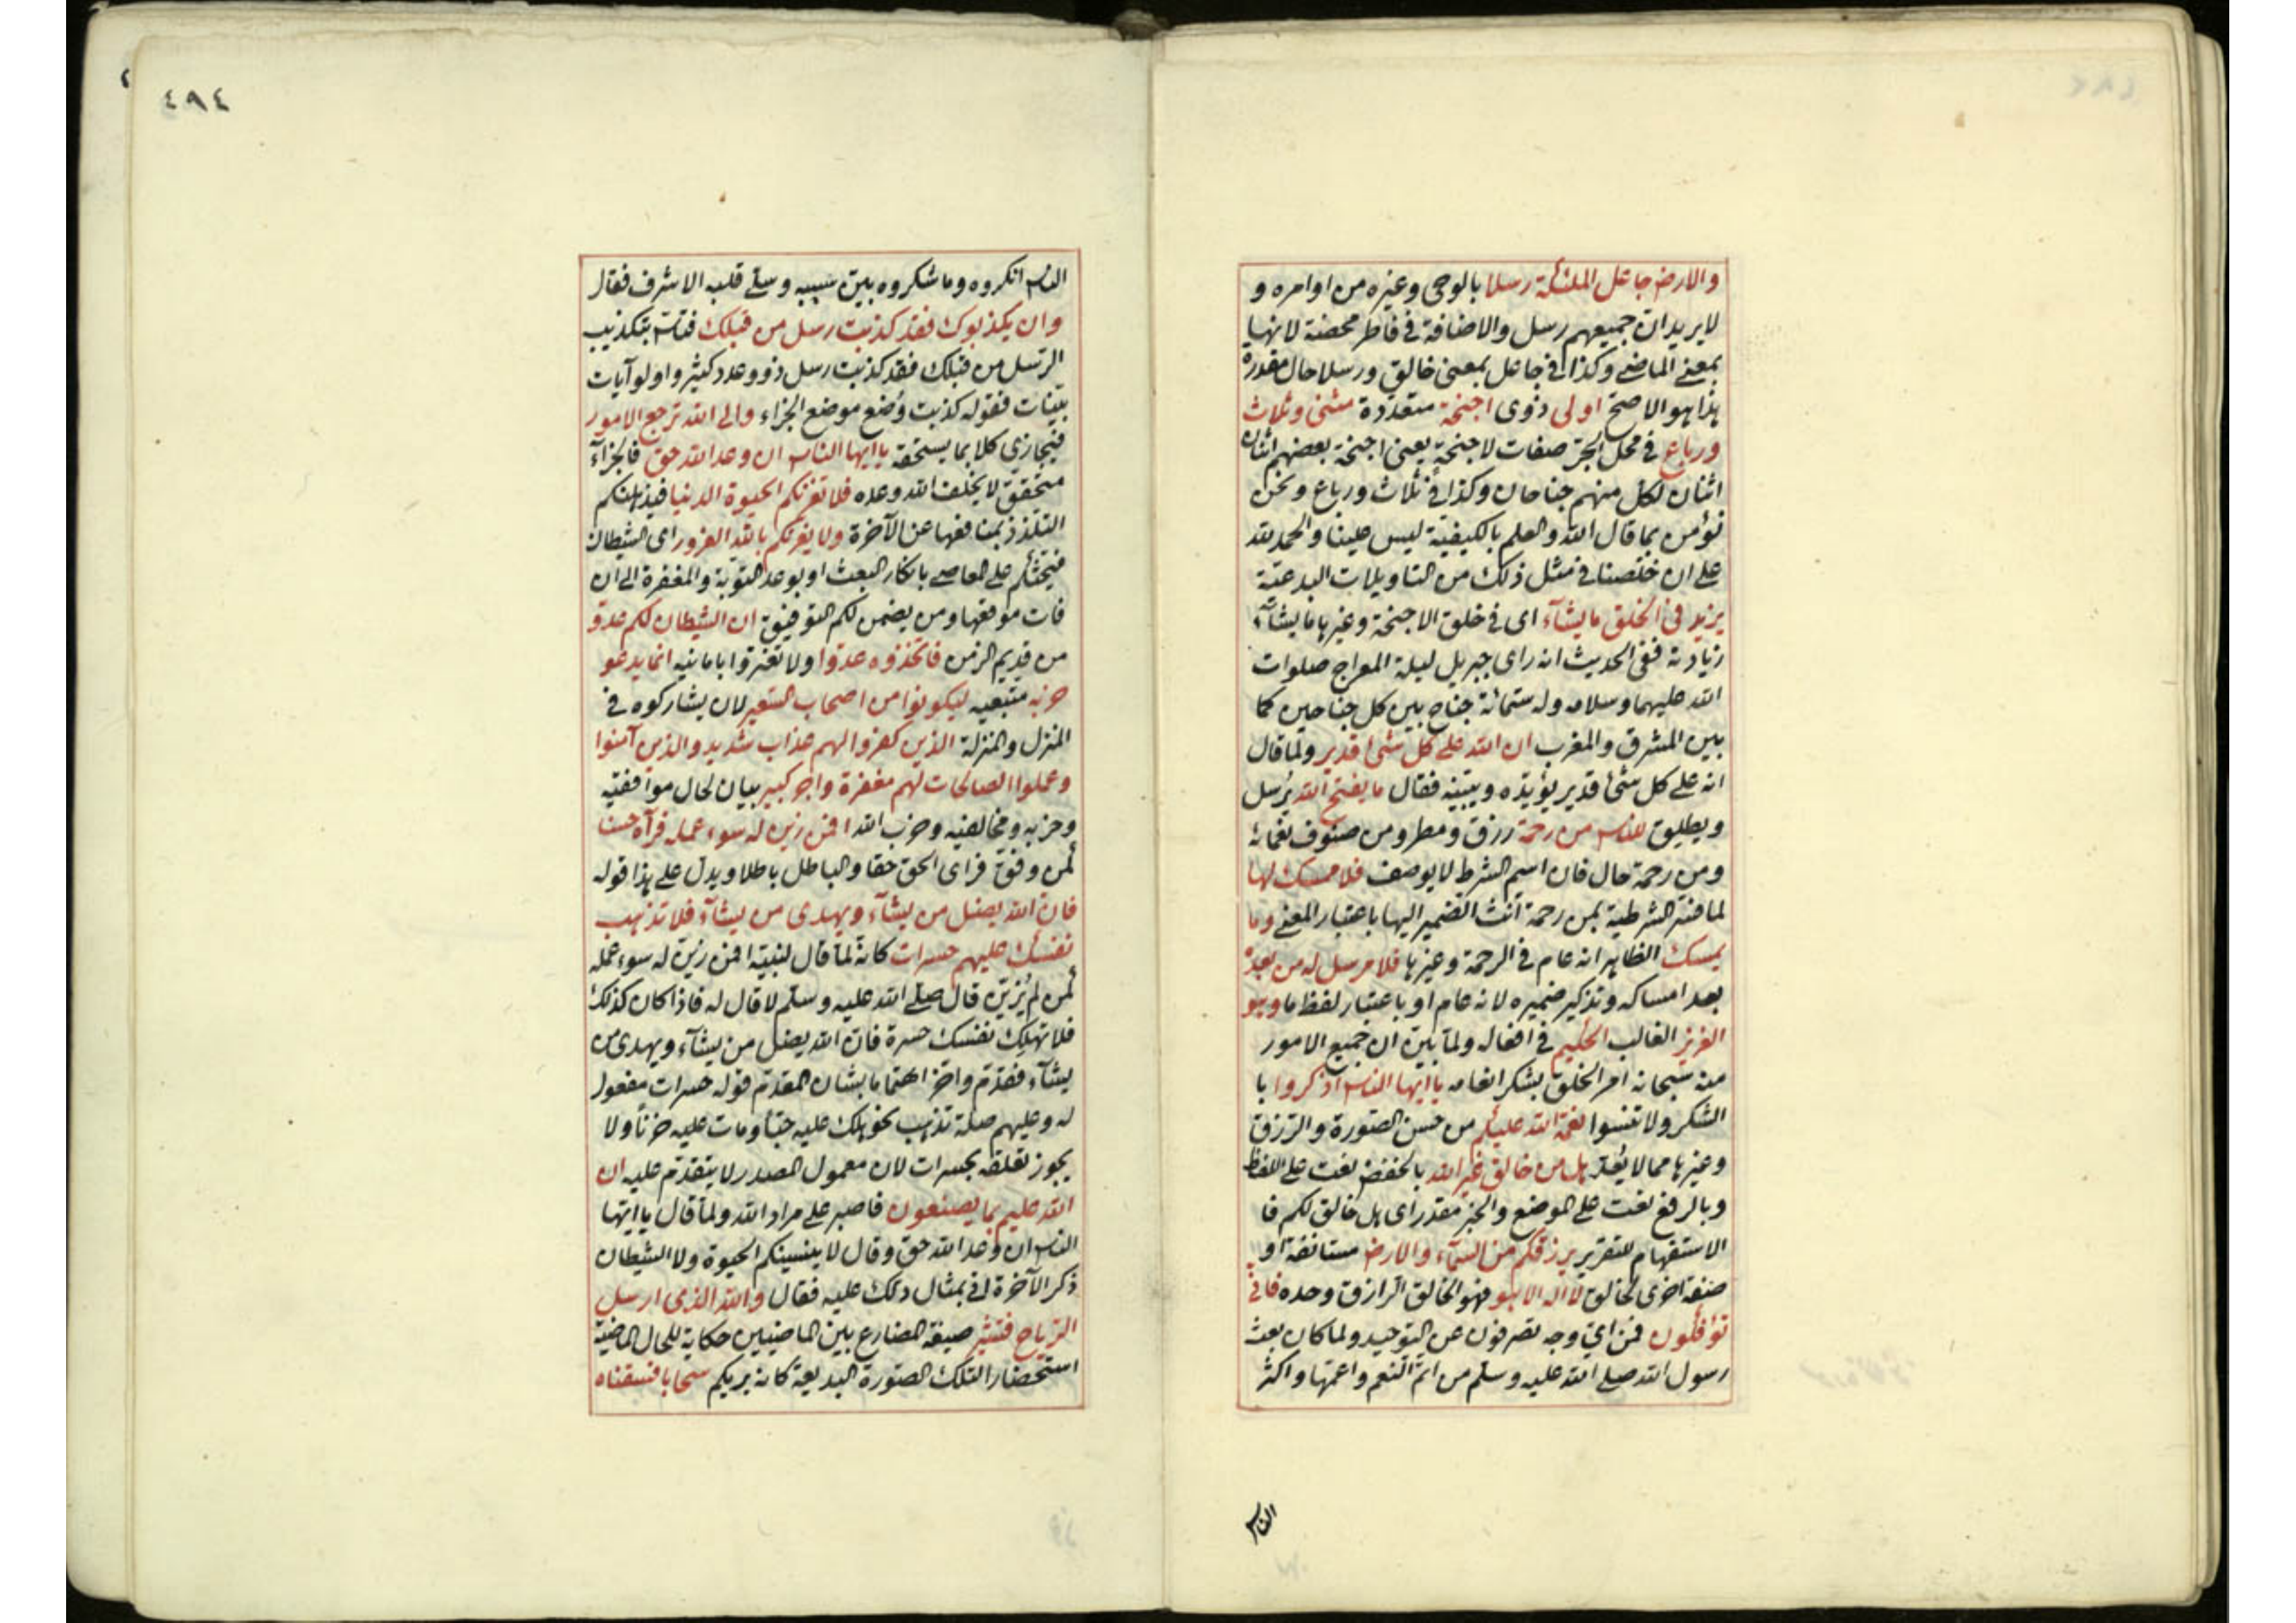 والارض جاعل الملئكة رسلا بالوحى وغيره من اوامره و
لا يريد ان جميعهم رسل والاضافة فى فاطر محضة لانها
بمعنى الماضى وكذا فى جاعل بمعنى خالق ورسلا حال مقدرة
هذا هو الاصح اولى ذوى اجنحة متعددة مثنى وثلاث
ورباع فى محل الجر صفات لاجنحة يعنى اجنحة بعضهم اثنان
اثنان لكل منهم جناحان وكذا فى ثلاث ورباع ونحن
نؤمن بما قال الله والعلم بالكيفية ليس علينا والحمد لله
على ان خلصنا فى مثل ذلك من التاويلات البدعية
يزيد فى الخلق ما يشآء اى فى خلق الاجنحة وغيرها ما يشآء
زيادته ففى الحديث انه راى جبريل ليلة المعراج صلوات
الله عليهما وسلامه وله ستمائة جناح بين كل جناحين كما
بين المشرق والمغرب ان الله على كل شئ قدير ولما قال
انه على كل شئ قدير يؤيده ويبينه فقال ما يفتح الله يرسل
ويطلق للناس من رحمة رزق ومطر ومن صنوف نعمائه
ومن رحمة حال فان اسم الشرط لا يوصف فلا ممسك لها
لما فسر الشرطية بمن رحمة أنث الضمير اليها باعتبار المعنى وما
يمسك الظاهر انه عام فى الرحمة وغيرها فلا مرسل له من بعده
بعد امساكه وتذكير ضميره لانه عام او باعتبار لفظ ما وهو
العزيز الغالب الحكيم فى افعاله ولما بين ان جميع الامور
منه سبحانه امر الخلق بشكر انعامه يا ايها الناس اذكروا با
الشكر ولا تنسوا نعمة الله عليكم من حسن الصورة والرزق
وغيرها مما لا يُعدّ هل من خالق غير الله بالخفض نعت على اللفظ
وبالرفع نعت على الموضع والخبر مقدر اى هل خالق لكم فا
الاستفهام للتقرير يرزقكم من السمآء والارض مستانفة او
صفة اخرى لخالق لا اله الا هو فهو الخالق الرازق وحده فانى
تؤفكون فمن اىّ وجه تصرفون عن التوحيد ولما كان بعث
رسول الله صلى الله عليه وسلم من اتم النعم واعمها واكثر
الناس
٤٩٤
الناس انكروه وما شكروه بيّن تسببه وسلّى قلبه الاشرف فقال
وان يكذبوك فقد كذبت رسل من قبلك فتاسّ بتكذيب
الرسل من قبلك فقد كذبت رسل ذوو عدد كثير واولو آيات
بينات فقوله كذبت وضع موضع الجزاء والى الله ترجع الامور
فيجازى كلا بما يستحقه يا ايها الناس ان وعد الله حق فالجزآء
متحقق لا يخلف الله وعده فلا تغرنكم الحيوة الدنيا فيذهلنكم
التلذذ بمنافعها عن الآخرة ولا يغرنكم بالله الغرور اى الشيطان
فيحثكم على المعاصى بانكار البعث او بوعد التوبة والمغفرة الى ان
فات موقعها ومن يضمن لكم التوفيق ان الشيطان لكم عدو
من قديم الزمن فاتخذوه عدوا ولا تغتروا بامانيه انما يدعو
حزبه متبعيه ليكونوا من اصحاب السعير لان يشاركوه فى
المنزل والمنزلة الذين كفروا لهم عذاب شديد والذين آمنوا
وعملوا الصالحات لهم مغفرة واجر كبير بيان لحال موافقيه
وحزبه ومخالفيه وحزب الله افمن زين له سوء عمله فرآه حسنا
كمن وفق فراى الحق حقا والباطل باطلا ويدل على هذا قوله
فان الله يضل من يشآء ويهدى من يشآء فلا تذهب
نفسك عليهم حسرات كانه لما قال لنبيه افمن زين له سوء عمله
كمن لم يُزين قال صلى الله عليه وسلم لا قال له فاذا كان كذلك
فلا تهلك نفسك حسرة فان الله يضل من يشآء ويهدى من
يشآء فقدم واخر اهتماما بشان المقدم قوله حسرات مفعول
له وعليهم صلة تذهب نحو هلك عليه حبّا ومات عليه حزنًا ولا
يجوز تعلقه بحسرات لان معمول المصدر لا يتقدم عليه ان
الله عليم بما يصنعون فاصبر على مراد الله ولما قال يا ايها
الناس ان وعد الله حق وقال لا ينسينكم الحيوة ولا الشيطان
ذكر الآخرة اتى بمثال دلك عليه فقال والله الذى ارسل
الرياح فتثير صيغة المضارع بين الماضيين حكاية للحال الماضية
استحضارا لتلك الصورة البديعة كانه يريكم سحابا فسقناه